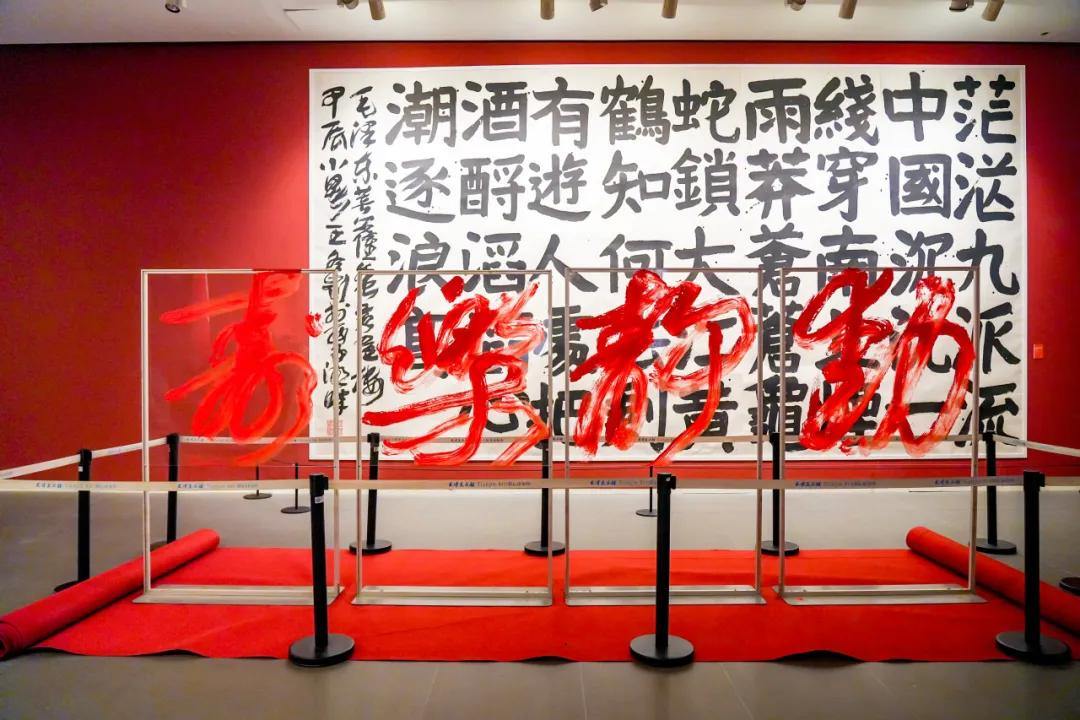 茫茫九派流
中國沉沉一
綫穿南北煙
雨莽蒼蒼龜
蛇鎖大江黃
鶴知何去剩
有遊人處把
酒酹滔滔心
潮逐浪高
毛澤東菩薩蠻黃鶴樓
甲辰小暑王冬齡於西子湖畔
動靜樂壽
天津美术馆 Tianjin Art Museum